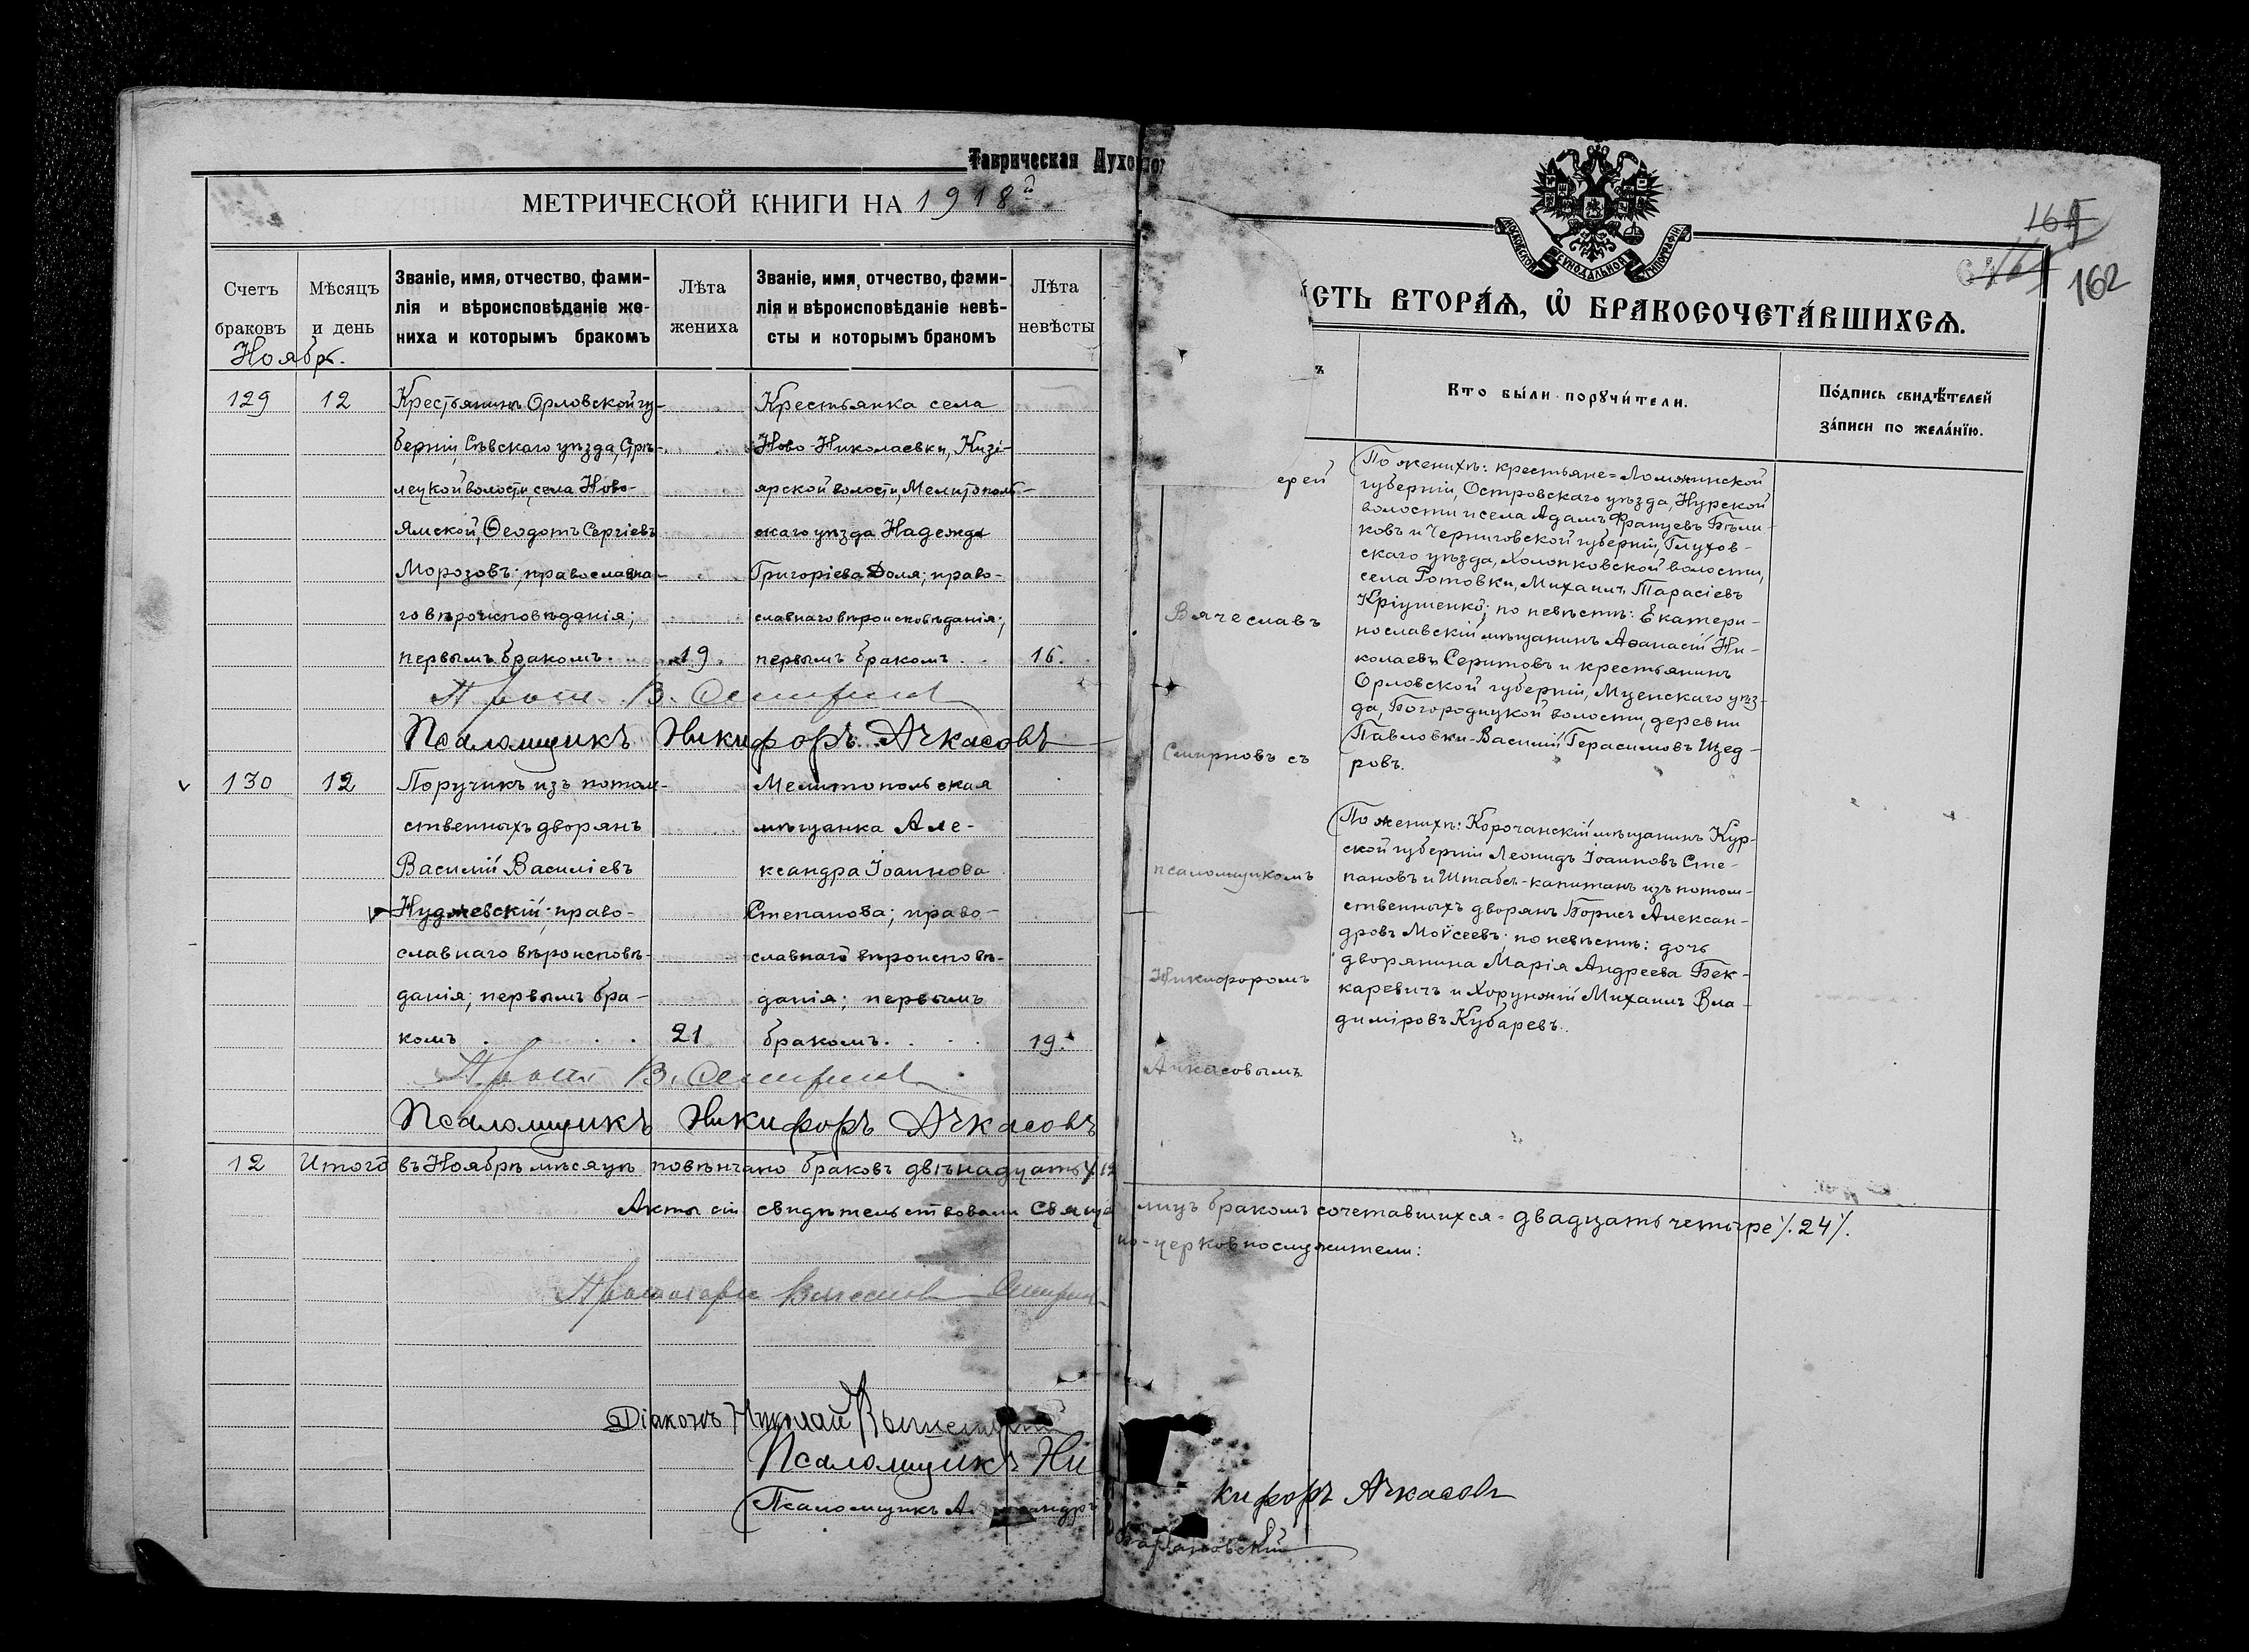 Таврическая Духо
МЕТРИЧЕСКОЙ КНИГИ НА 1918й
Счетъ браковъ
Мѣсяцъ и день
Званіе, имя, отчество, фами-
лія и вѣроисповѣданіе же-
ниха и которымъ бракомъ
Лѣта жениха
Званіе, имя, отчество, фами-
лія и вѣроисповѣданіе невѣ-
сты и которымъ бракомъ
Лѣта невѣсты
Ноябрь.
129
12
Крестьянинъ Орловской гу-
берніи, Сѣвскаго уѣзда, Стрѣ-
лецкой волости, села Ново-
Ямской, Ѳеодотъ Сергіевъ
Морозовъ; православна-
го вѣроисповѣданія;
первымъ бракомъ . .
19.
Крестьянка села
Ново-Николаевки, Кизі-
ярской волости, Мелитополь-
скаго уѣзда Надежда
Григоріева Доля; право-
славнаго вѣроисповѣданія;
первымъ бракомъ . .
16.
Прот. В. Смирнов
Псаломщикъ Никифоръ Ачкасовъ
130
12
Поручикъ изъ потом-
ственныхъ дворянъ
Василій Василіевъ
Нуджевскій; право-
славнаго вѣроисповѣ-
данія; первымъ бра-
комъ . . . .
21
Мелитопольская
мѣщанка Але-
ксандра Іоаннова
Степанова; право-
славнаго вѣроисповѣ-
данія; первымъ
бракомъ. . . .
19.
Прот. В. Смирнов
Псаломщикъ Никифоръ Ачкасовъ
12 Итого въ Ноябрѣ мѣсяцѣ повѣнчано браковъ двѣнадцать /. 12
Акты сіи свидѣтельствовали Свяще
Протоіерей Вячеслав Смирнов
Діаконъ Николай
Псаломщикъ Ни
Псаломщикъ А андръ
МОСКОВСКОЙ СѴНОДАЛЬНОЙ ТИПОГРАФІИ
162
СТЬ ВТОРАѦ, Ѿ БРАКОСОЧЕТАВШИХСѦ.
ъ
Кто были порꙋчители.
Подпись свидѣтелей
записи по желанїю.
ерей
Вячеславъ
Смирновъ съ
псаломщикомъ
Никифоромъ
Ачкасовымъ.
По женихѣ: крестьяне = Ломжинской
губерніи, Островскаго уѣзда, Нурской
волости и села Адамъ Францевъ Бѣли-
ковъ и Черниговской губерніи, Глухов-
скаго уѣзда, Холопковской волости,
села Ротовки, Михаилъ Тарасіевъ
Кріушенко; по невѣстѣ: Екатери-
нославскій мѣщанинъ Аѳанасій Ни-
колаевъ Серитовъ и крестьянинъ
Орловской губерніи, Мценскаго уѣз-
да, Богородицкой волости, деревни
Павловки - Василій Герасимовъ Щед-
ровъ.
По женихѣ: Корочанскій мѣщанинъ Кур-
ской губерніи Леонидъ Іоанновъ Сте-
пановъ и Штабсъ-капитанъ изъ потом-
ственныхъ дворянъ Борисъ Алексан-
дровъ Моѵсеевъ; по невѣстѣ: дочь
дворянина Марія Андреева Бек-
каревичъ и Хорунжій Михаилъ Вла-
диміровъ Кубаревъ.
лицъ бракомъ сочетавшихся - двадцать четыре /. 24 /.
но-церковнослужители:
кифоръ Ачкасовъ
Барановскій